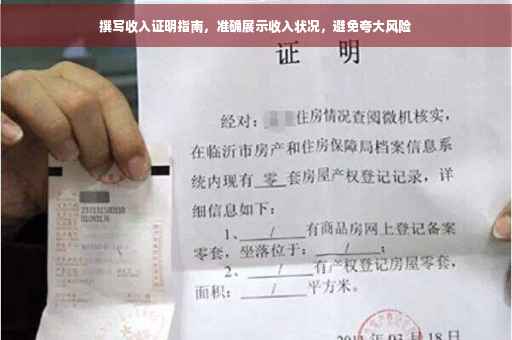 撰写收入证明指南，准确展示收入状况，避免夸大风险
证 明
经对：住房情况查阅微机核实，
在临沂市房产和住房保障局档案信息系
统内现有 零 套房屋产权登记记录，详
细信息如下：
1、 / 有商品房网上登记备案
零套，坐落位于： / ；
2、 / 有产权登记房屋零套，
面积： / 平方米。
03月18日